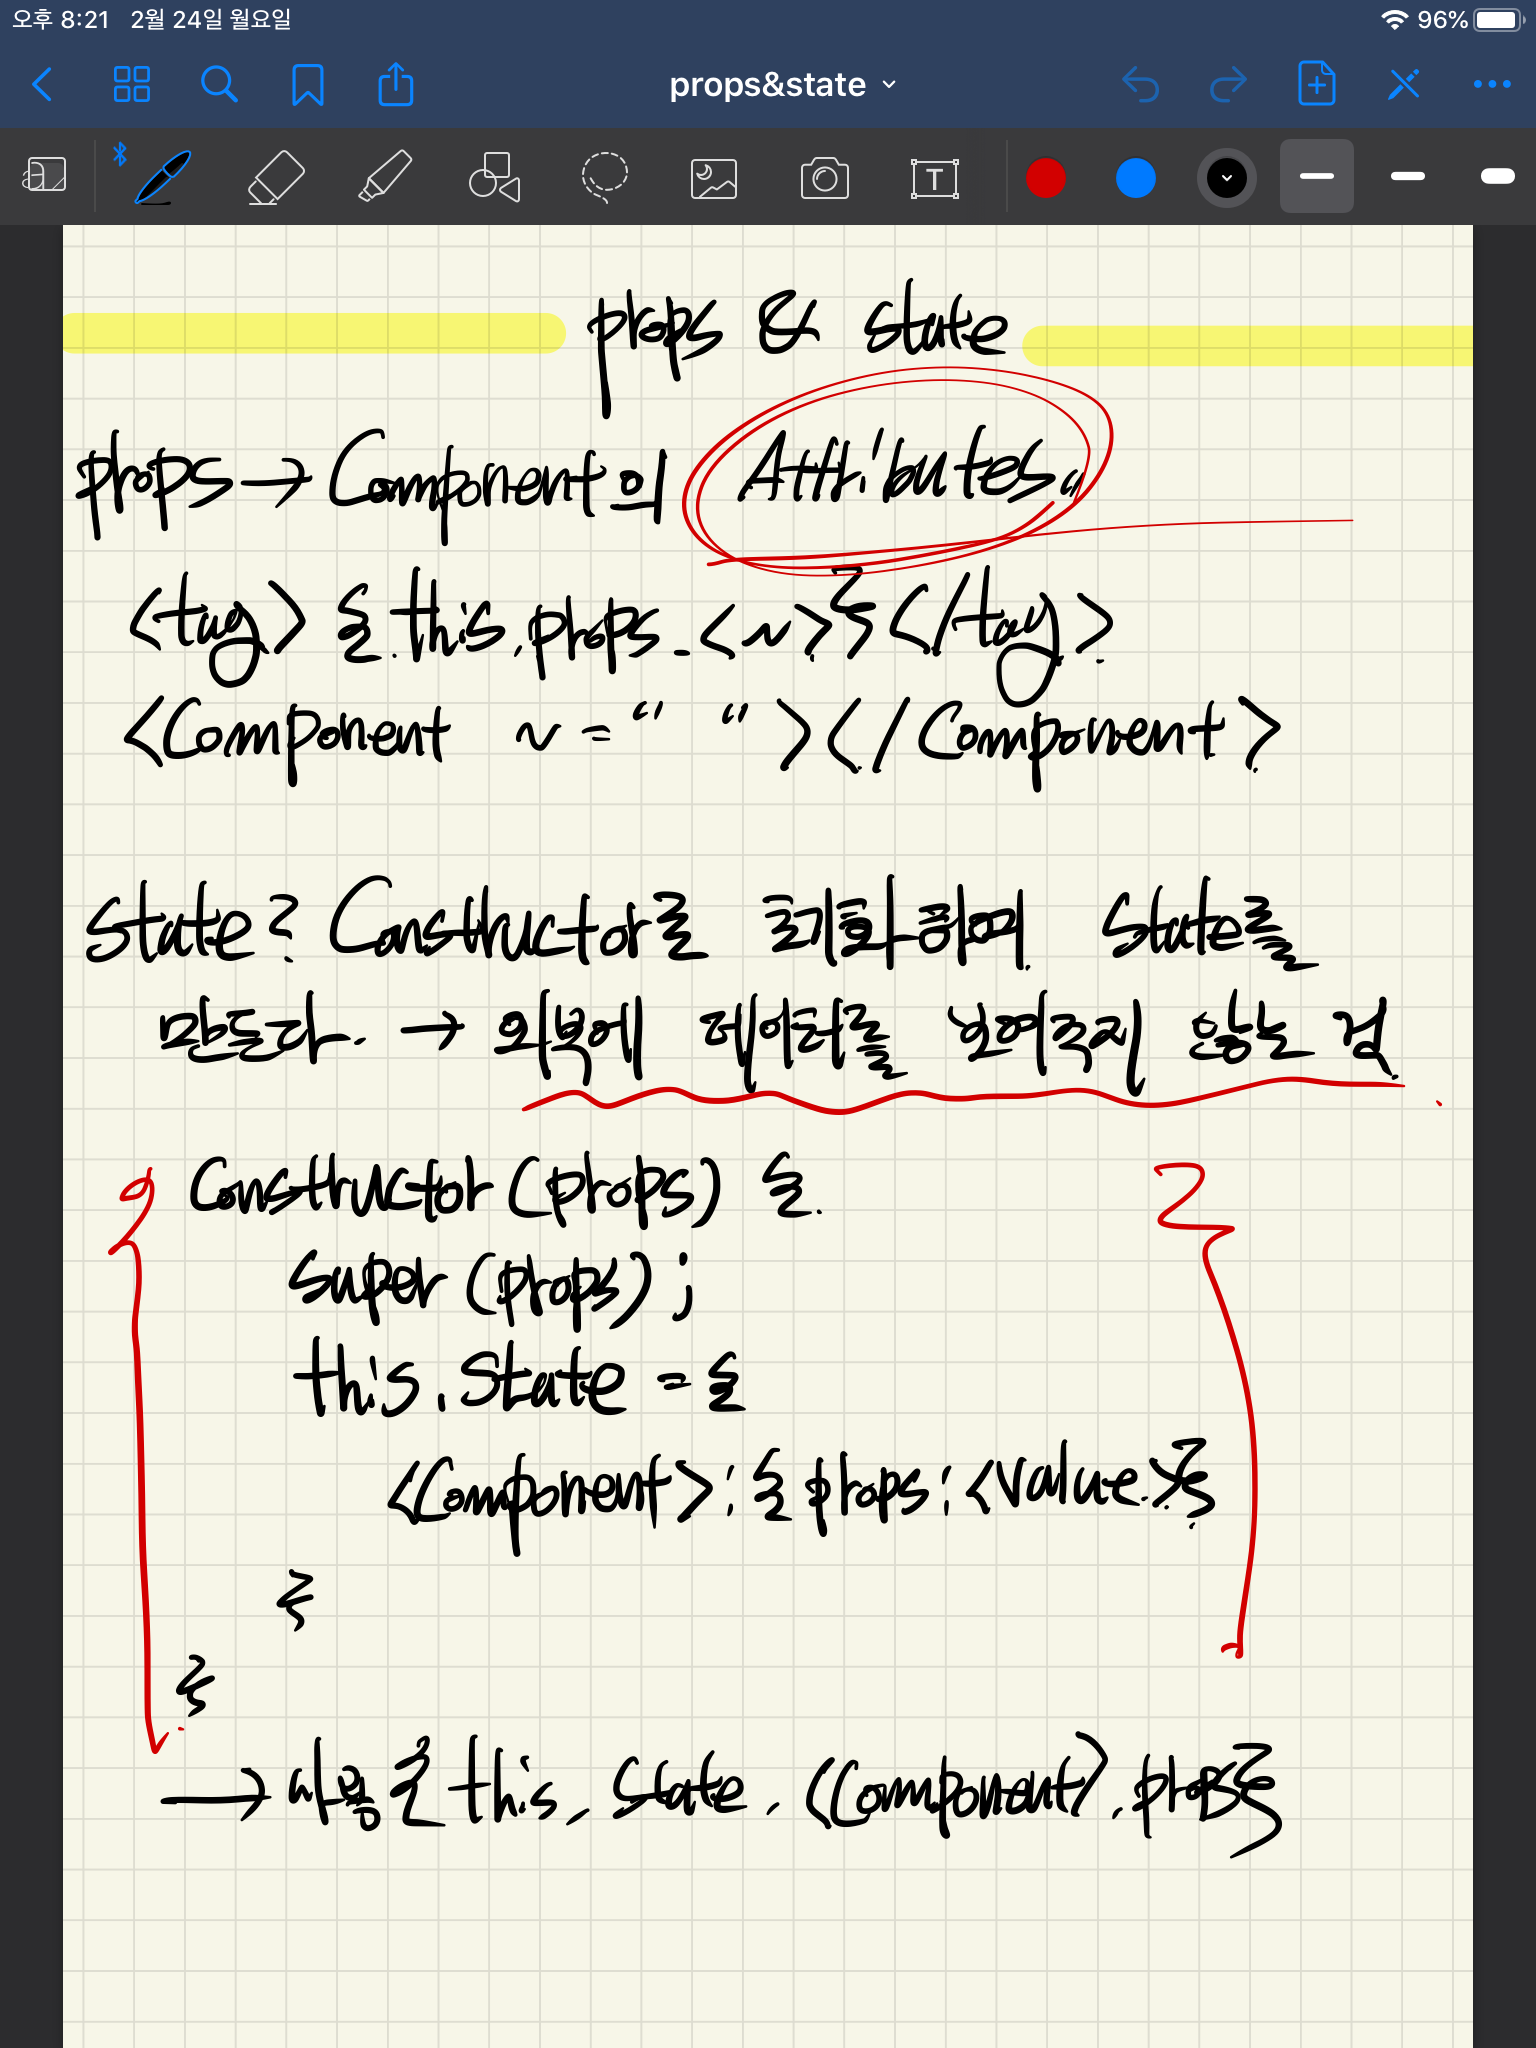 오후 8:21 2월 24일 월요일 96%
props&state
T
props & state
props → Component의 Attributes.,
<tag> { this.props.<~>}</tag>
<Component ~ = " " ></Component>
State? Constructor로 초기화하여 State를
만든다. → 외부에 데이터를 보여주지 않는 겁
Constructor (props) {
super (props) ;
this.State = {
<Component> : { props : <value>}
}
}
→ 사용 { this.State.<Component>.props}